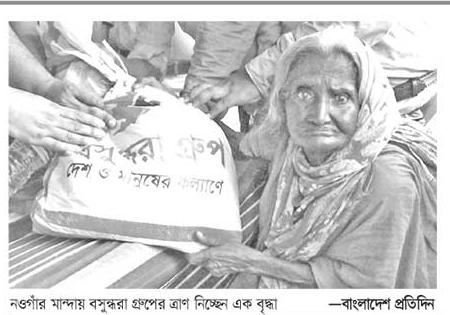 বসুন্ধরা গ্রুপ
দেশ ও মানুষের কল্যাণে
নওগাঁর মান্দায় বসুন্ধরা গ্রুপের ত্রাণ নিচ্ছেন এক বৃদ্ধা —বাংলাদেশ প্রতিদিন